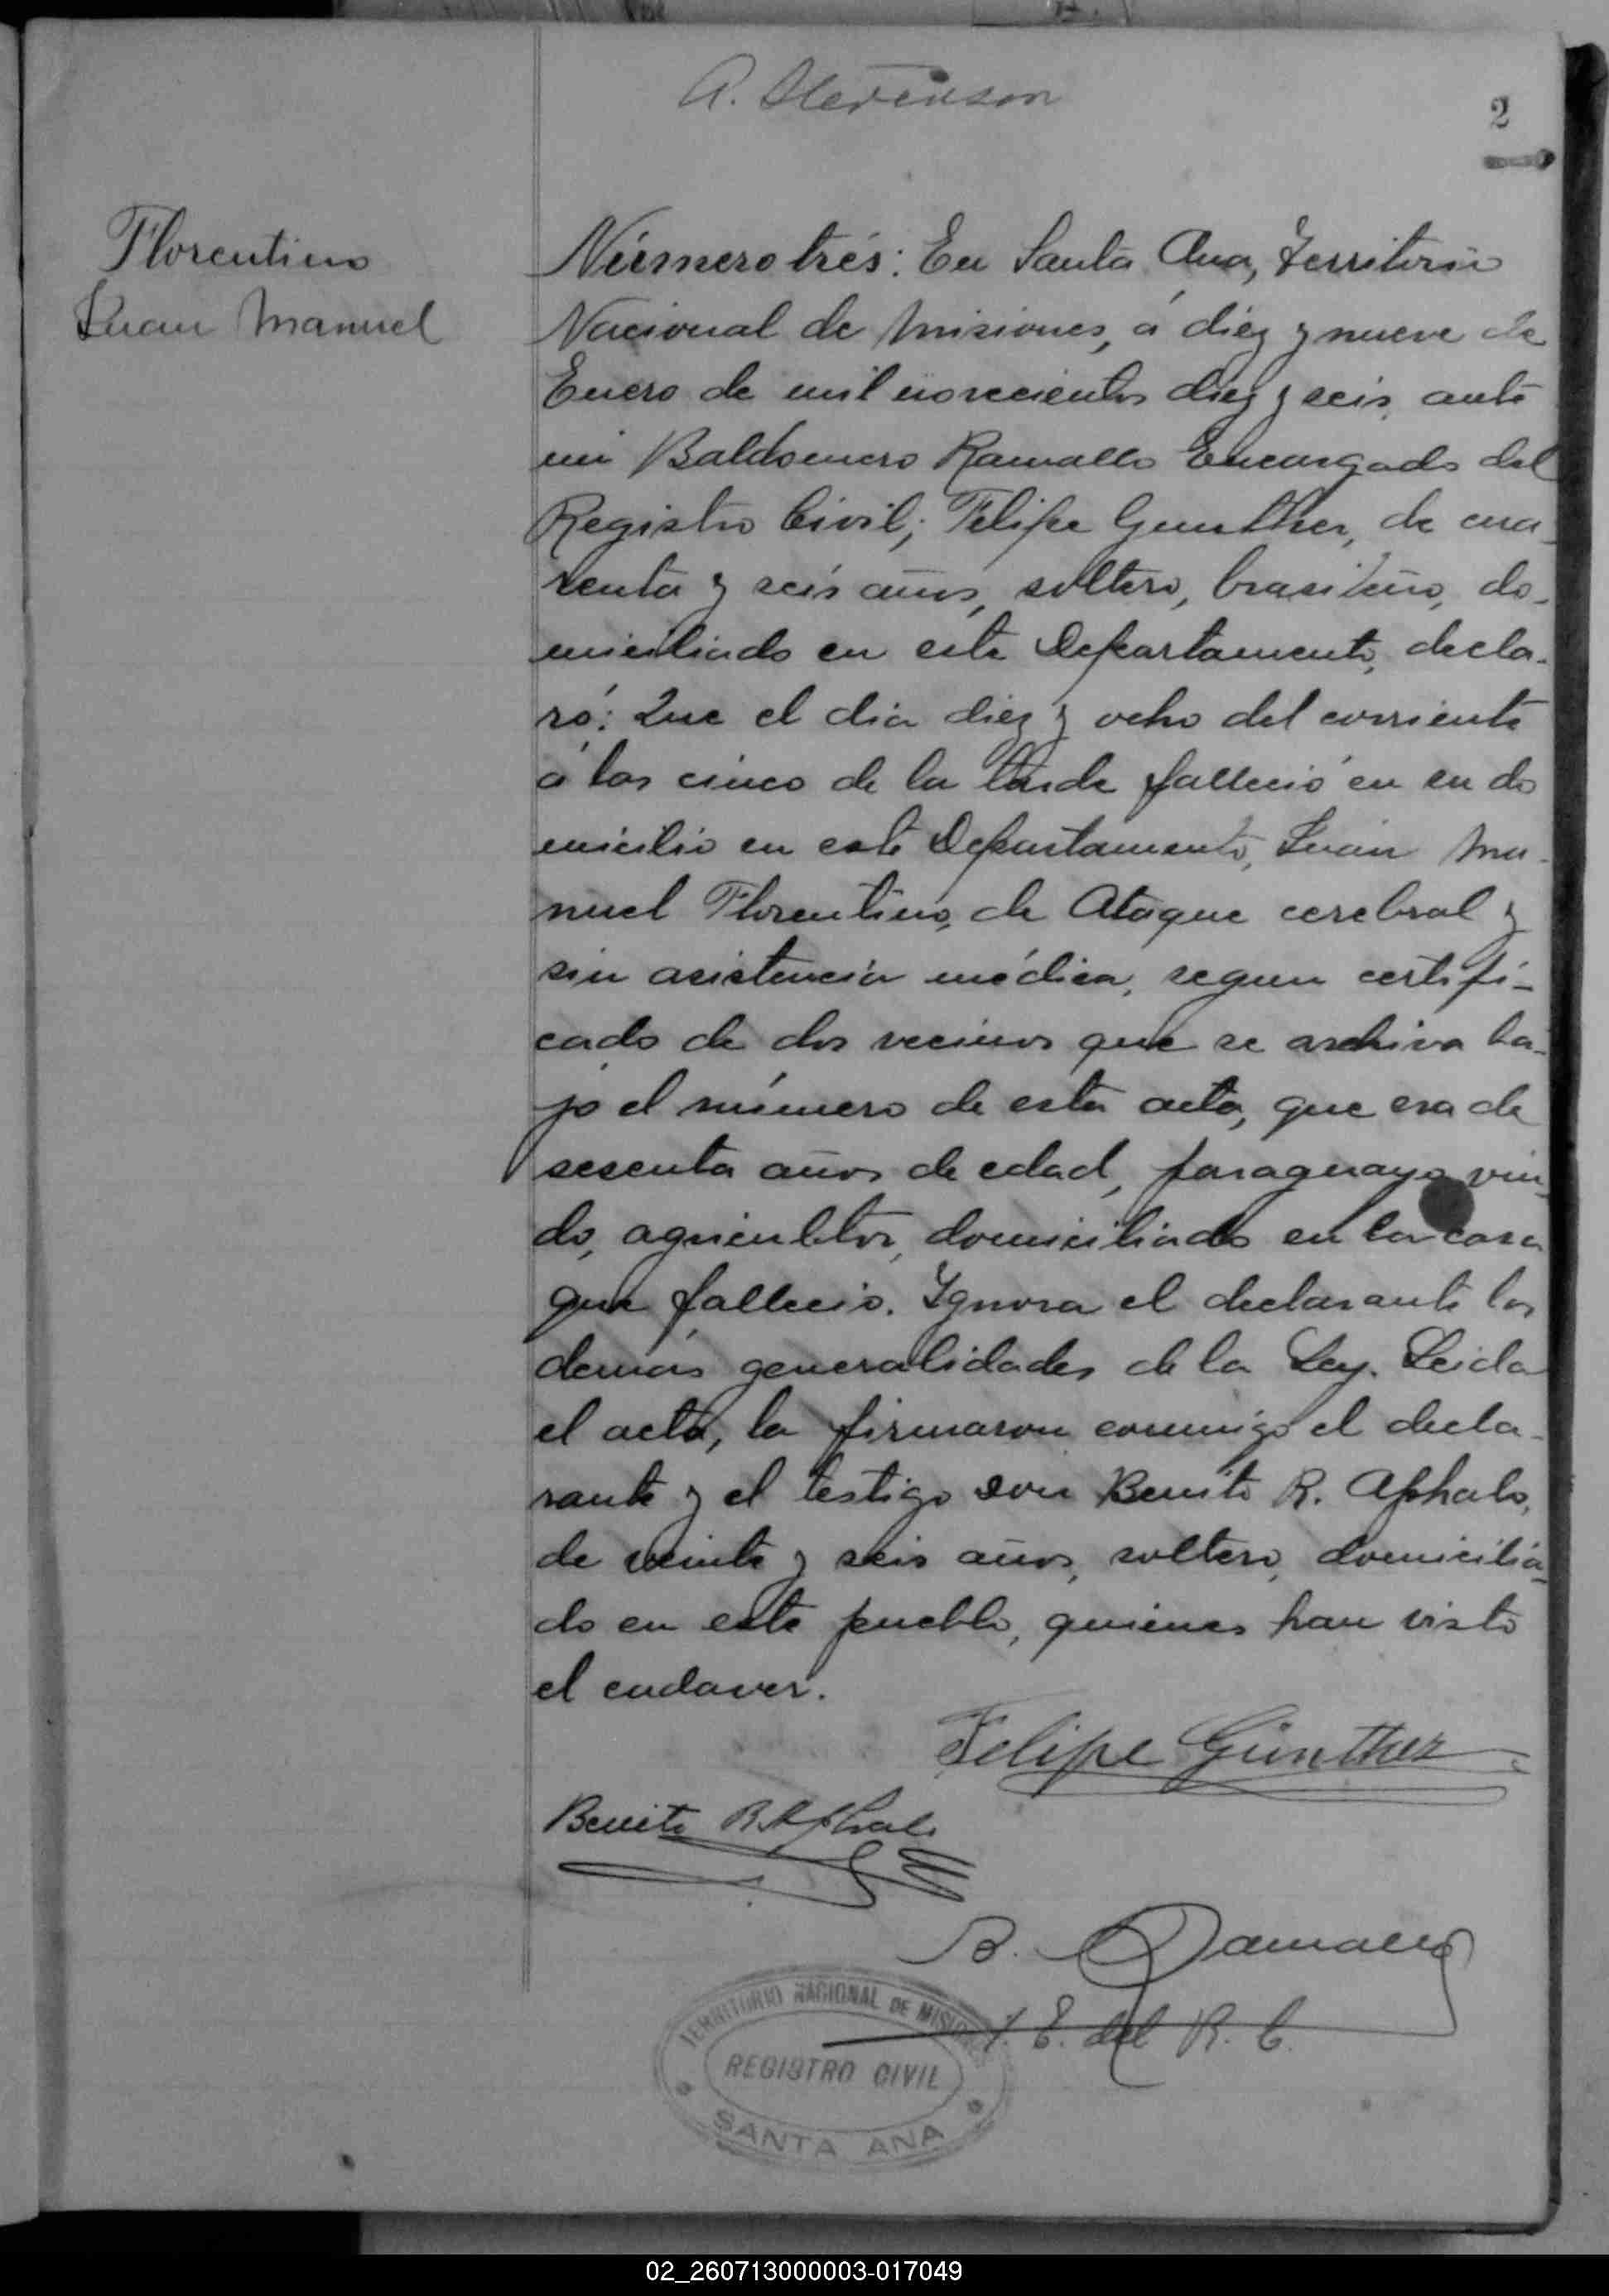 A. Stevenson
2
Florentino
Juan Manuel
Número trés: En Santa Ana, Territorio
Nacional de Misiones, á diez y nueve de
Enero de mil novecientos diez y seis, ante
mi Baldomero Ramallo Encargado del
Registro Civil; Felipe Gunther, de cua-
renta y seis años, soltero, brasileño, do-
miciliado en este Departamento, decla-
ró: Que el dia diez y ocho del corriente
á las cinco de la tarde falleció en su do
micilio en este Departamento, Juan Ma-
nuel Florentino, de Ataque cerebral y
sin asistencia médica, segun certifi-
cado de dos vecinos que se archiva ba-
jo el número de esta acta, que era de
sesenta años de edad, paraguayo, viu-
do, agricultor, domiciliado en la casa
que fallecio. Ignora el declarante las
demás generalidades de la Ley. Leida
el acta, la firmaron conmigo el decla-
rante y el testigo Don Benito R. Aphalo,
de veinte y seis años, soltero, domicilia-
do en este pueblo, quienes han visto
el cadaver.
Felipe Günther
Benito R. Aphalo
B. Ramallo
E. del R. C.
TERRITORIO NACIONAL DE MISIONES
REGISTRO CIVIL
SANTA ANA
02_260713000003-017049